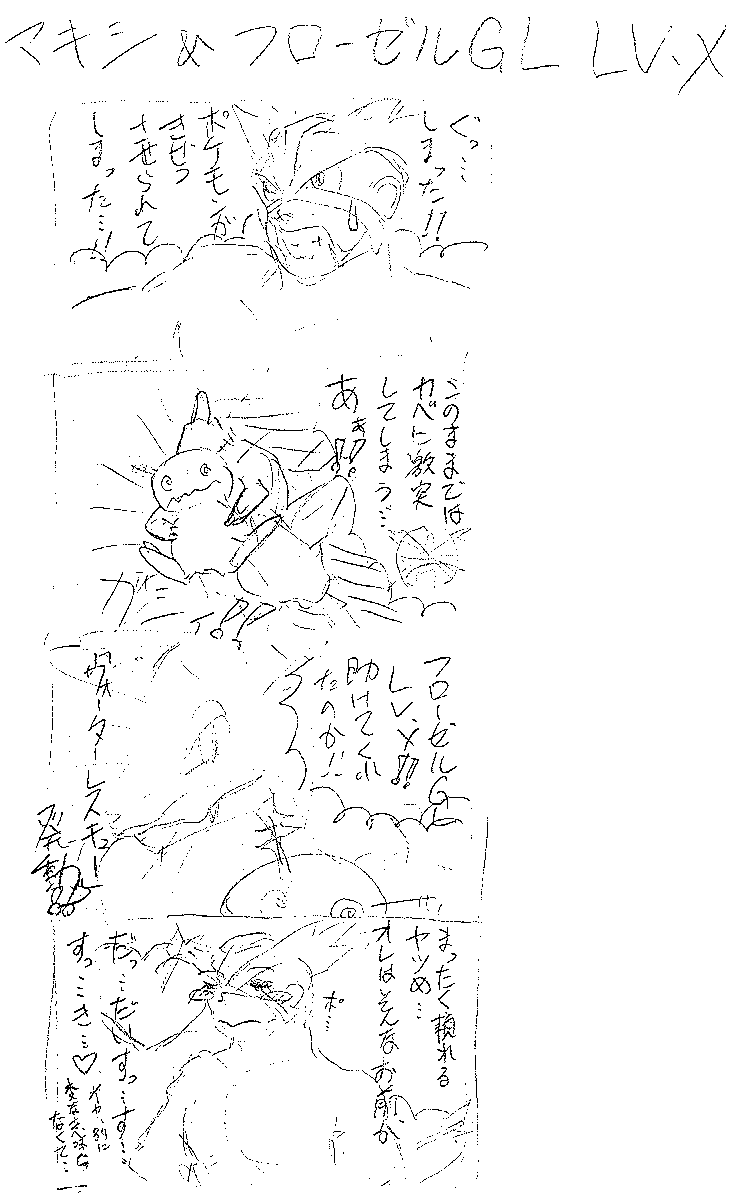 マキシ & フローゼルGL LV.X
ぐっ…
しまった!!
ポケモンが
きぜつ
させられて
しまった…!!
このままでは
カベに激突
してしまう…
あぁ!!
ガシィッ!!
フローゼルGL
LV.X!!
助けてくれ
たのか!!
ウォーターレスキュー
発動!!
まったく頼れる
ヤツめ…
オレはそんなお前が、
ポ…
だっ…だいすっ…す…
すっ…き…♡
イヤ、別に
変な意味じゃ
なくて…